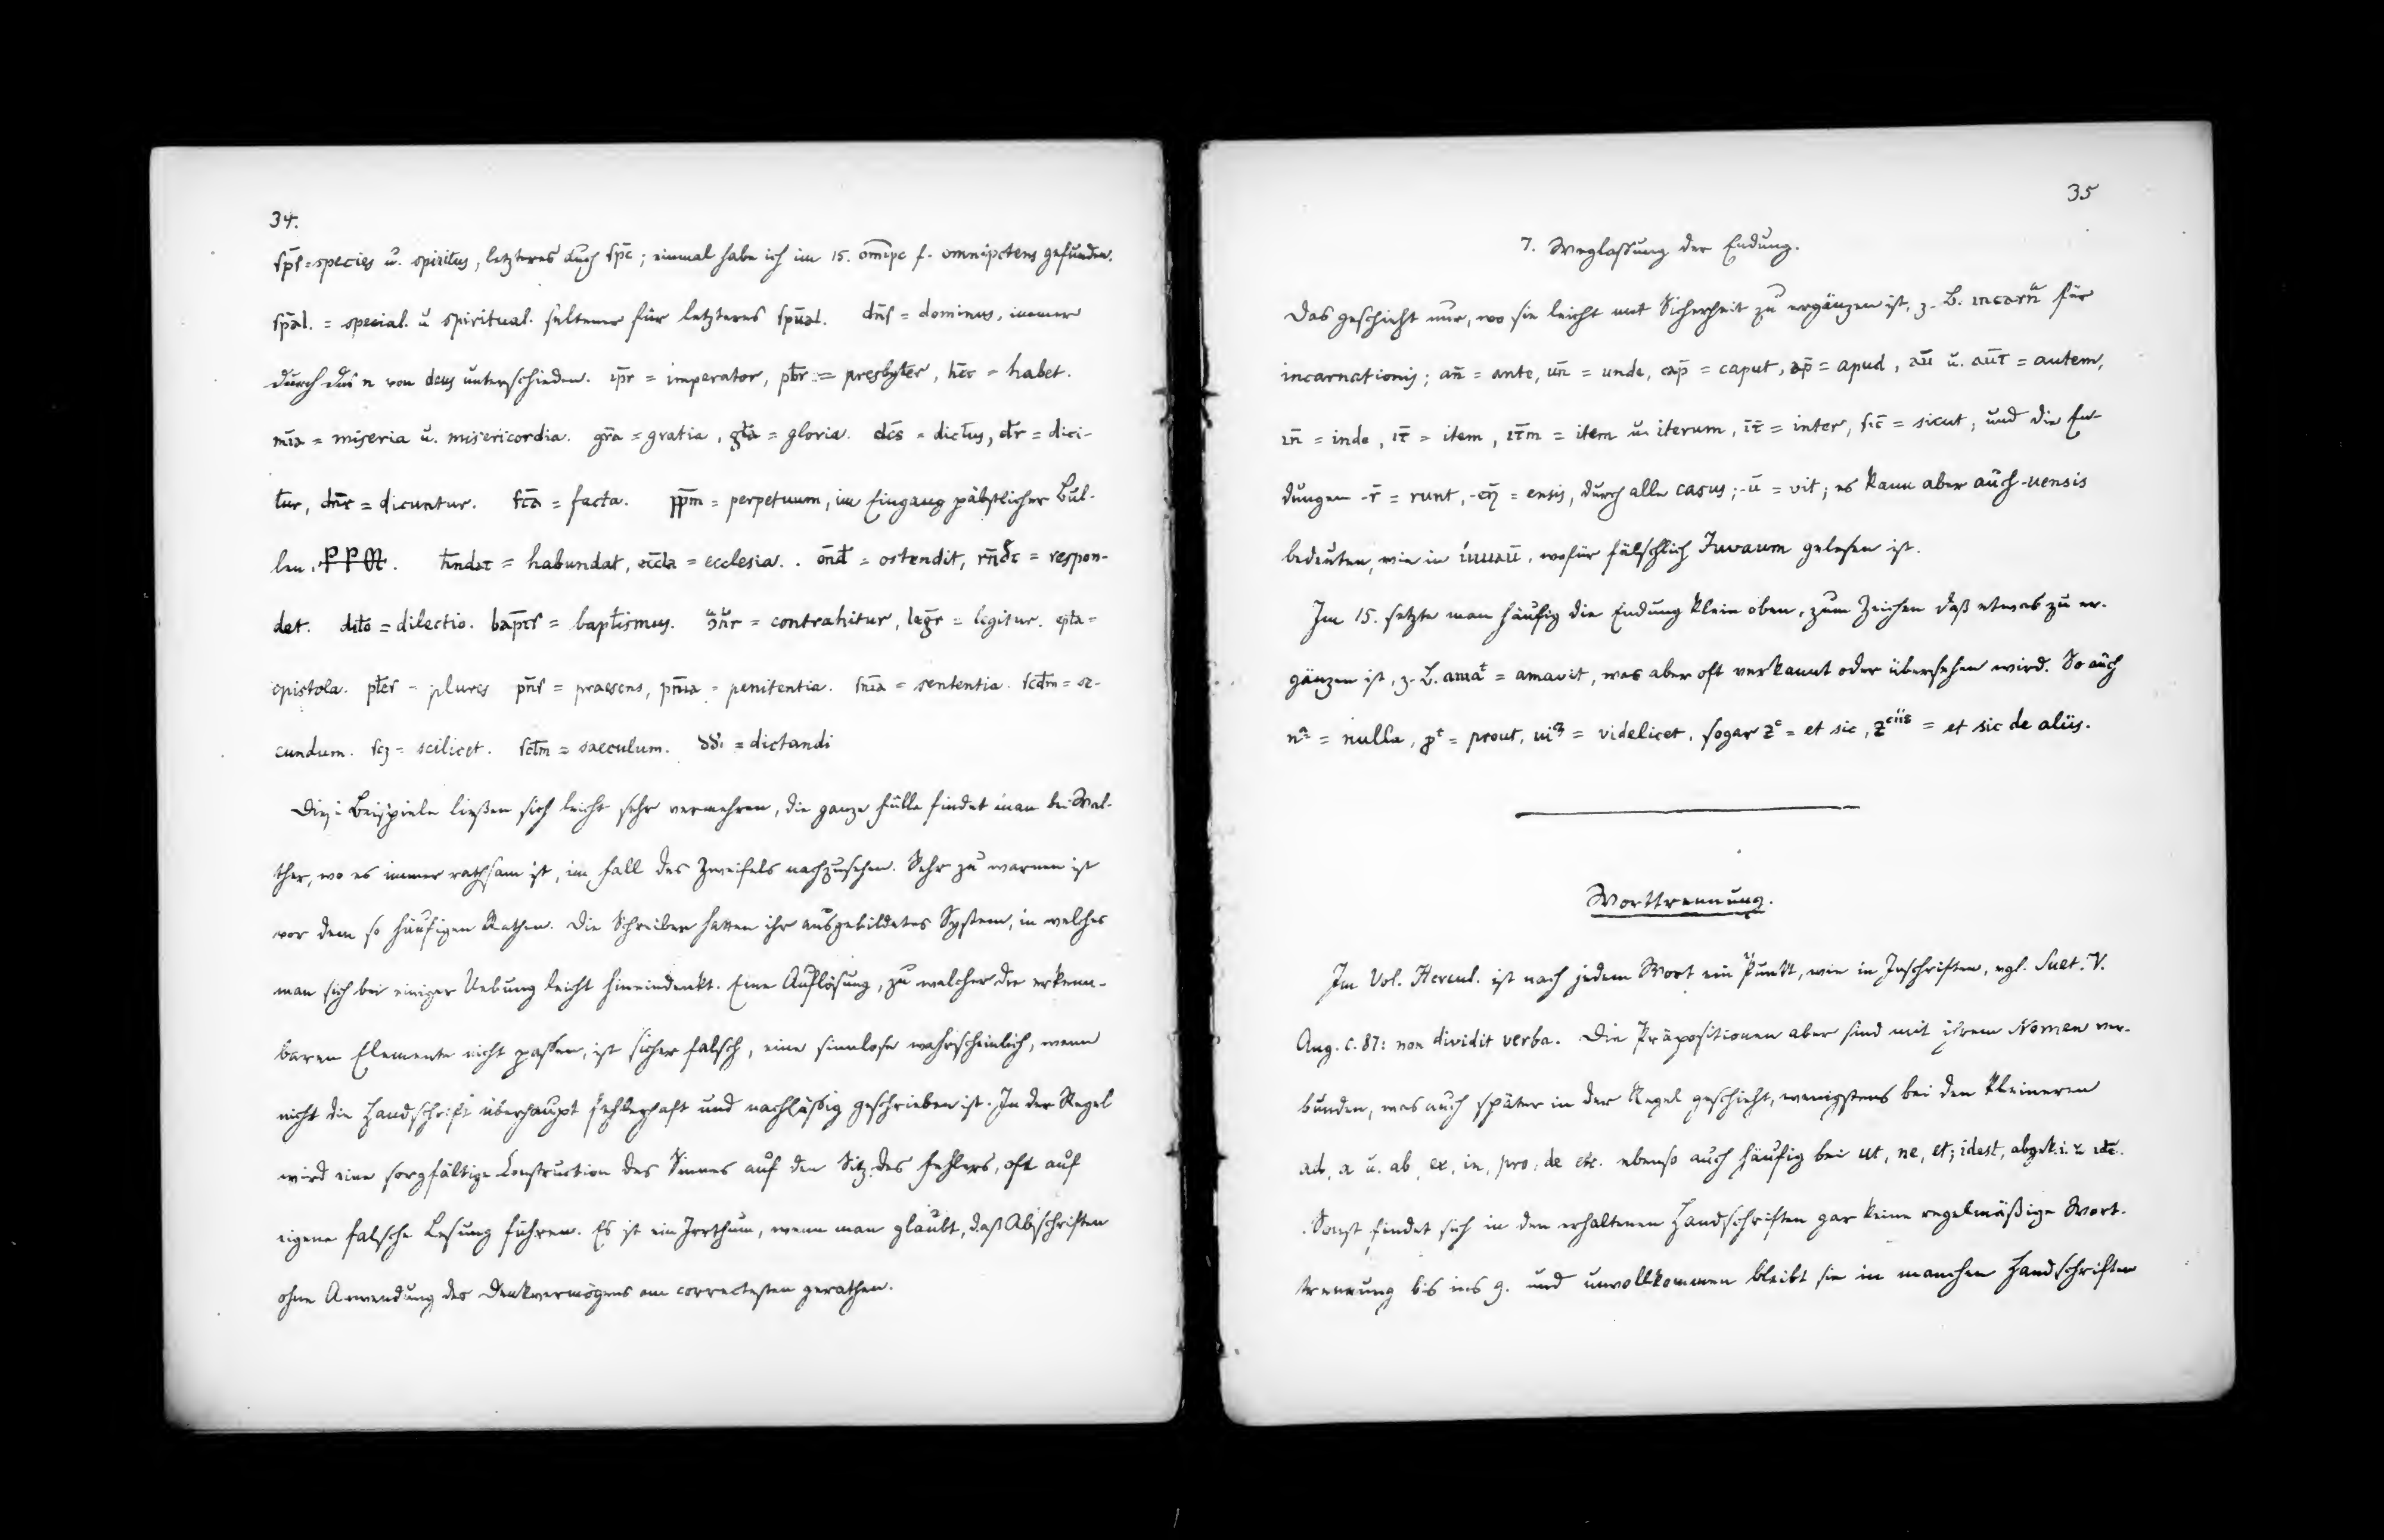 34.
ſp̄ſ = species u. spiritus, letzteres auch ſp̄c; einmal habe ich im 15. om̄ipc f. omnipotens gefunden.
ſp̄al. = special. u spiritual. seltener für letzteres ſpūal. dn̄ſ = dominus, immer
durch das n von deus unterschieden. ıp̄r = imperator, pb̄r = presbyter, h̄ēt = habet.
m̄ıa = miseria u. misericordia. gr̄a = gratia, gl̄a = gloria. dc̄s = dictus, dr̄ = dici-
tur, dn̄r = dicuntur. fc̄a = facta. pp̄m = perpetuum, im Eingang päbstlicher Bul-
len. PPM. hn̄dat = habundat, eccl̄a = ecclesia. on̄d = ostendit, rn̄dt = respon-
det. dıl̄o = dilectio. bap̄tſ = baptismus. ɔhr = contrahitur, leḡr = legitur. epl̄a =
epistola. pl̄eſ = plures pn̄ſ = praesens, pn̄ıa = penitentia. ſn̄ıa = sententia. ſcd̄m = se-
cundum. ſcꝫ = scilicet. ſcl̄m = saeculum. ddi = dictandi
Diese Beispiele ließen sich leicht sehr vermehren, die ganze Fülle findet man bei Wal-
ther, wo es immer rathsam ist, im Fall des Zweifels nachzusehen. Sehr zu warnen ist
vor dem so häufigen Rathen. Die Schreiber hatten ihr ausgebildetes System, in welches
man sich bei einiger Uebung leicht hineindenkt. Eine Auflösung, zu welcher die erkenn-
baren Elemente nicht passen, ist sicher falsch, eine sinnlose wahrscheinlich, wenn
nicht die Handschrift überhaupt fehlerhaft und nachlässig geschrieben ist. In der Regel
wird eine sorgfältige Construction des Sinnes auf den Sitz des Fehlers, oft auf
eigene falsche Lesung führen. Es ist ein Irrthum, wenn man glaubt, daß Abschriften
ohne Anwendung des Denkvermögens am correctesten gerathen.
35
7. Weglassung der Endung.
Das geschieht nur, wo sie leicht mit Sicherheit zu ergänzen ist, z. B. incarn̄ für
incarnationis; an̄ = ante, un̄ = unde, cap̄ = caput, ap̄ = apud, aū u. aūt = autem,
ın̄ = inde, ıt̄ = item, ıt̄m = item u. iterum, īt̄ = inter, ſıc̄ = sicut; und die En-
dungen -r̄ = runt, -en̄ = ensis, durch alle casus; -ū = vit; es kann aber auch -uensis
bedeuten, wie in iuuaū, wofür fälschlich Iuvaum gelesen ist.
Im 15. setzte man häufig die Endung klein oben, zum Zeichen daß etwas zu er-
gänzen ist, z. B. amaᵗ = amavit, was aber oft verkannt oder übersehen wird. So auch
nᵃ = nulla, pᵗ = prout, uiꝫ = videlicet, sogar zᶜ = et sic, zᶜⁱⁱˢ = et sic de aliis.
Worttrennung.
Im Vol. Hercul. ist nach jedem Wort ein Punkt, wie in Inschriften, vgl. Suet. V.
Aug. c. 87: non dividit verba. Die Präpositionen aber sind mit ihrem Nomen ver-
bunden, was auch später in der Regel geschieht, wenigstens bei den kleineren
ad, a u. ab, ex, in, pro, de etc. ebenso auch häufig bei ut, ne, et; idest, abgek. i. u id̄e.
Sonst findet sich in den erhaltenen Handschriften gar keine regelmäßige Wort-
trennung bis ins 9. und unvollkommen bleibt sie in manchen Handschriften